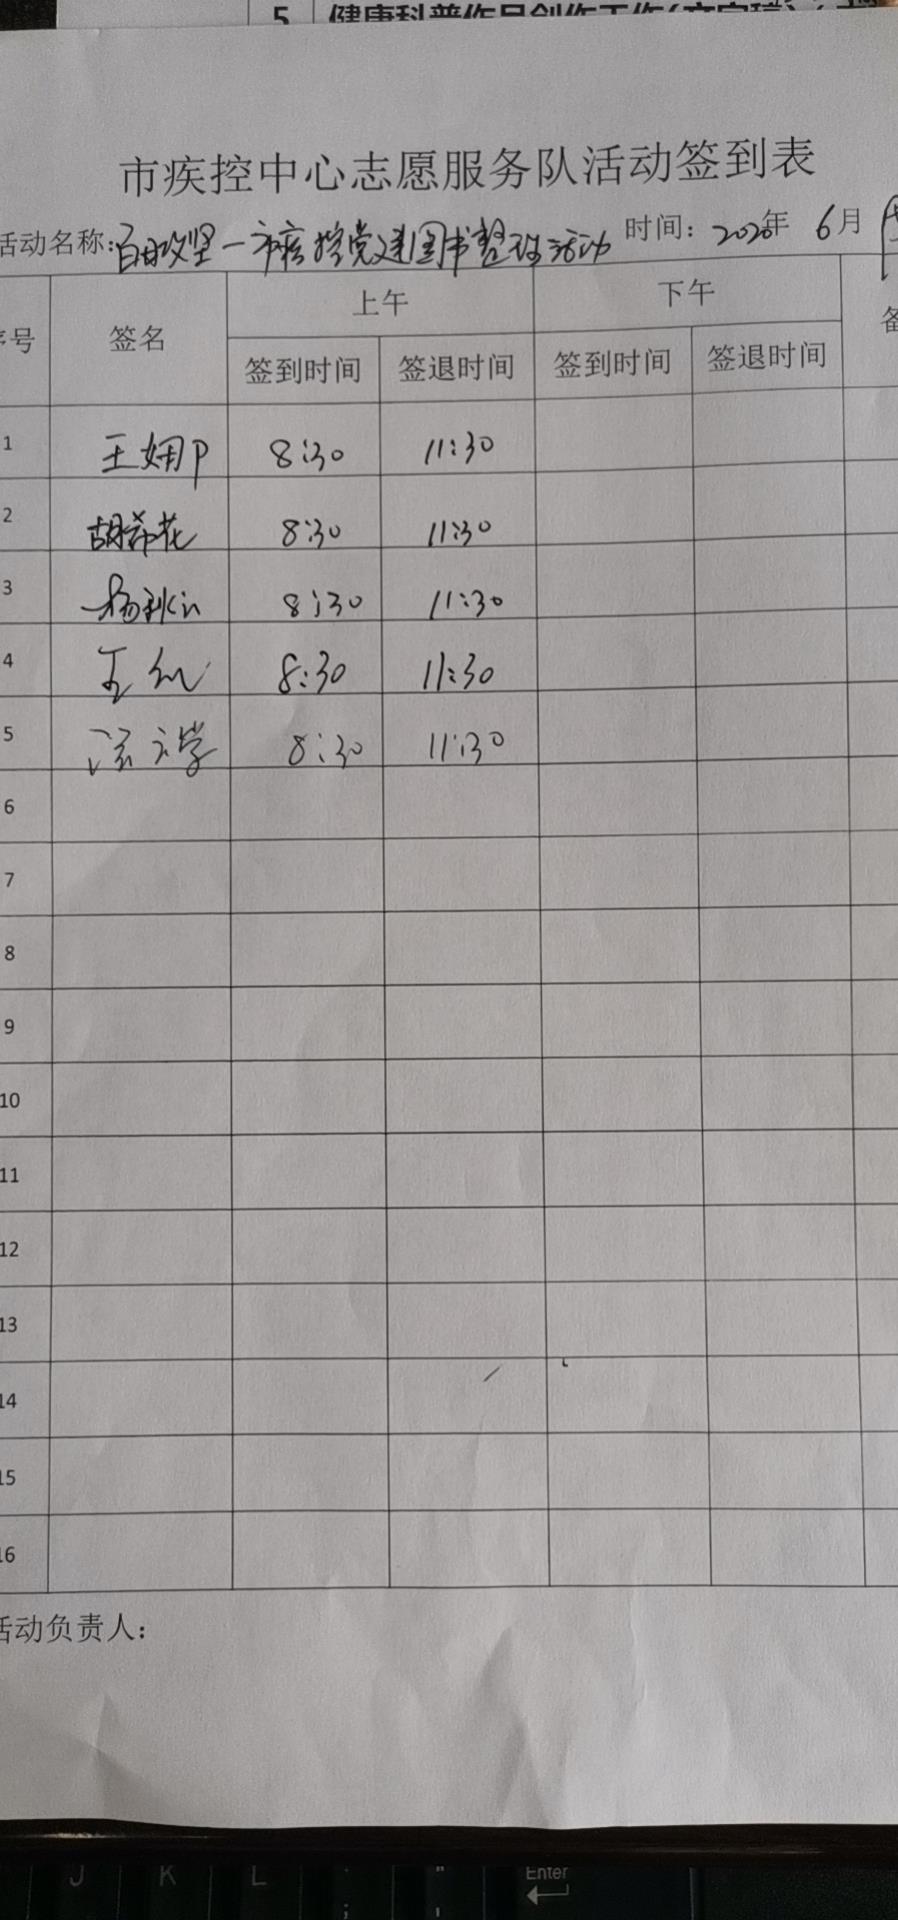 5 健康科普作品创作工作(文字稿)
市疾控中心志愿服务队活动签到表
活动名称:百日攻坚一市疾控党建图书整理活动 时间: 2020年 6月
序号 签名 上午 下午 备
签到时间 签退时间 签到时间 签退时间
1 王娜 8:30 11:30
2 胡希花 8:30 11:30
3 杨秋 8:30 11:30
4 王红 8:30 11:30
5 8:30 11:30
6
7
8
9
10
11
12
13
14
15
16
活动负责人:
J K L Enter